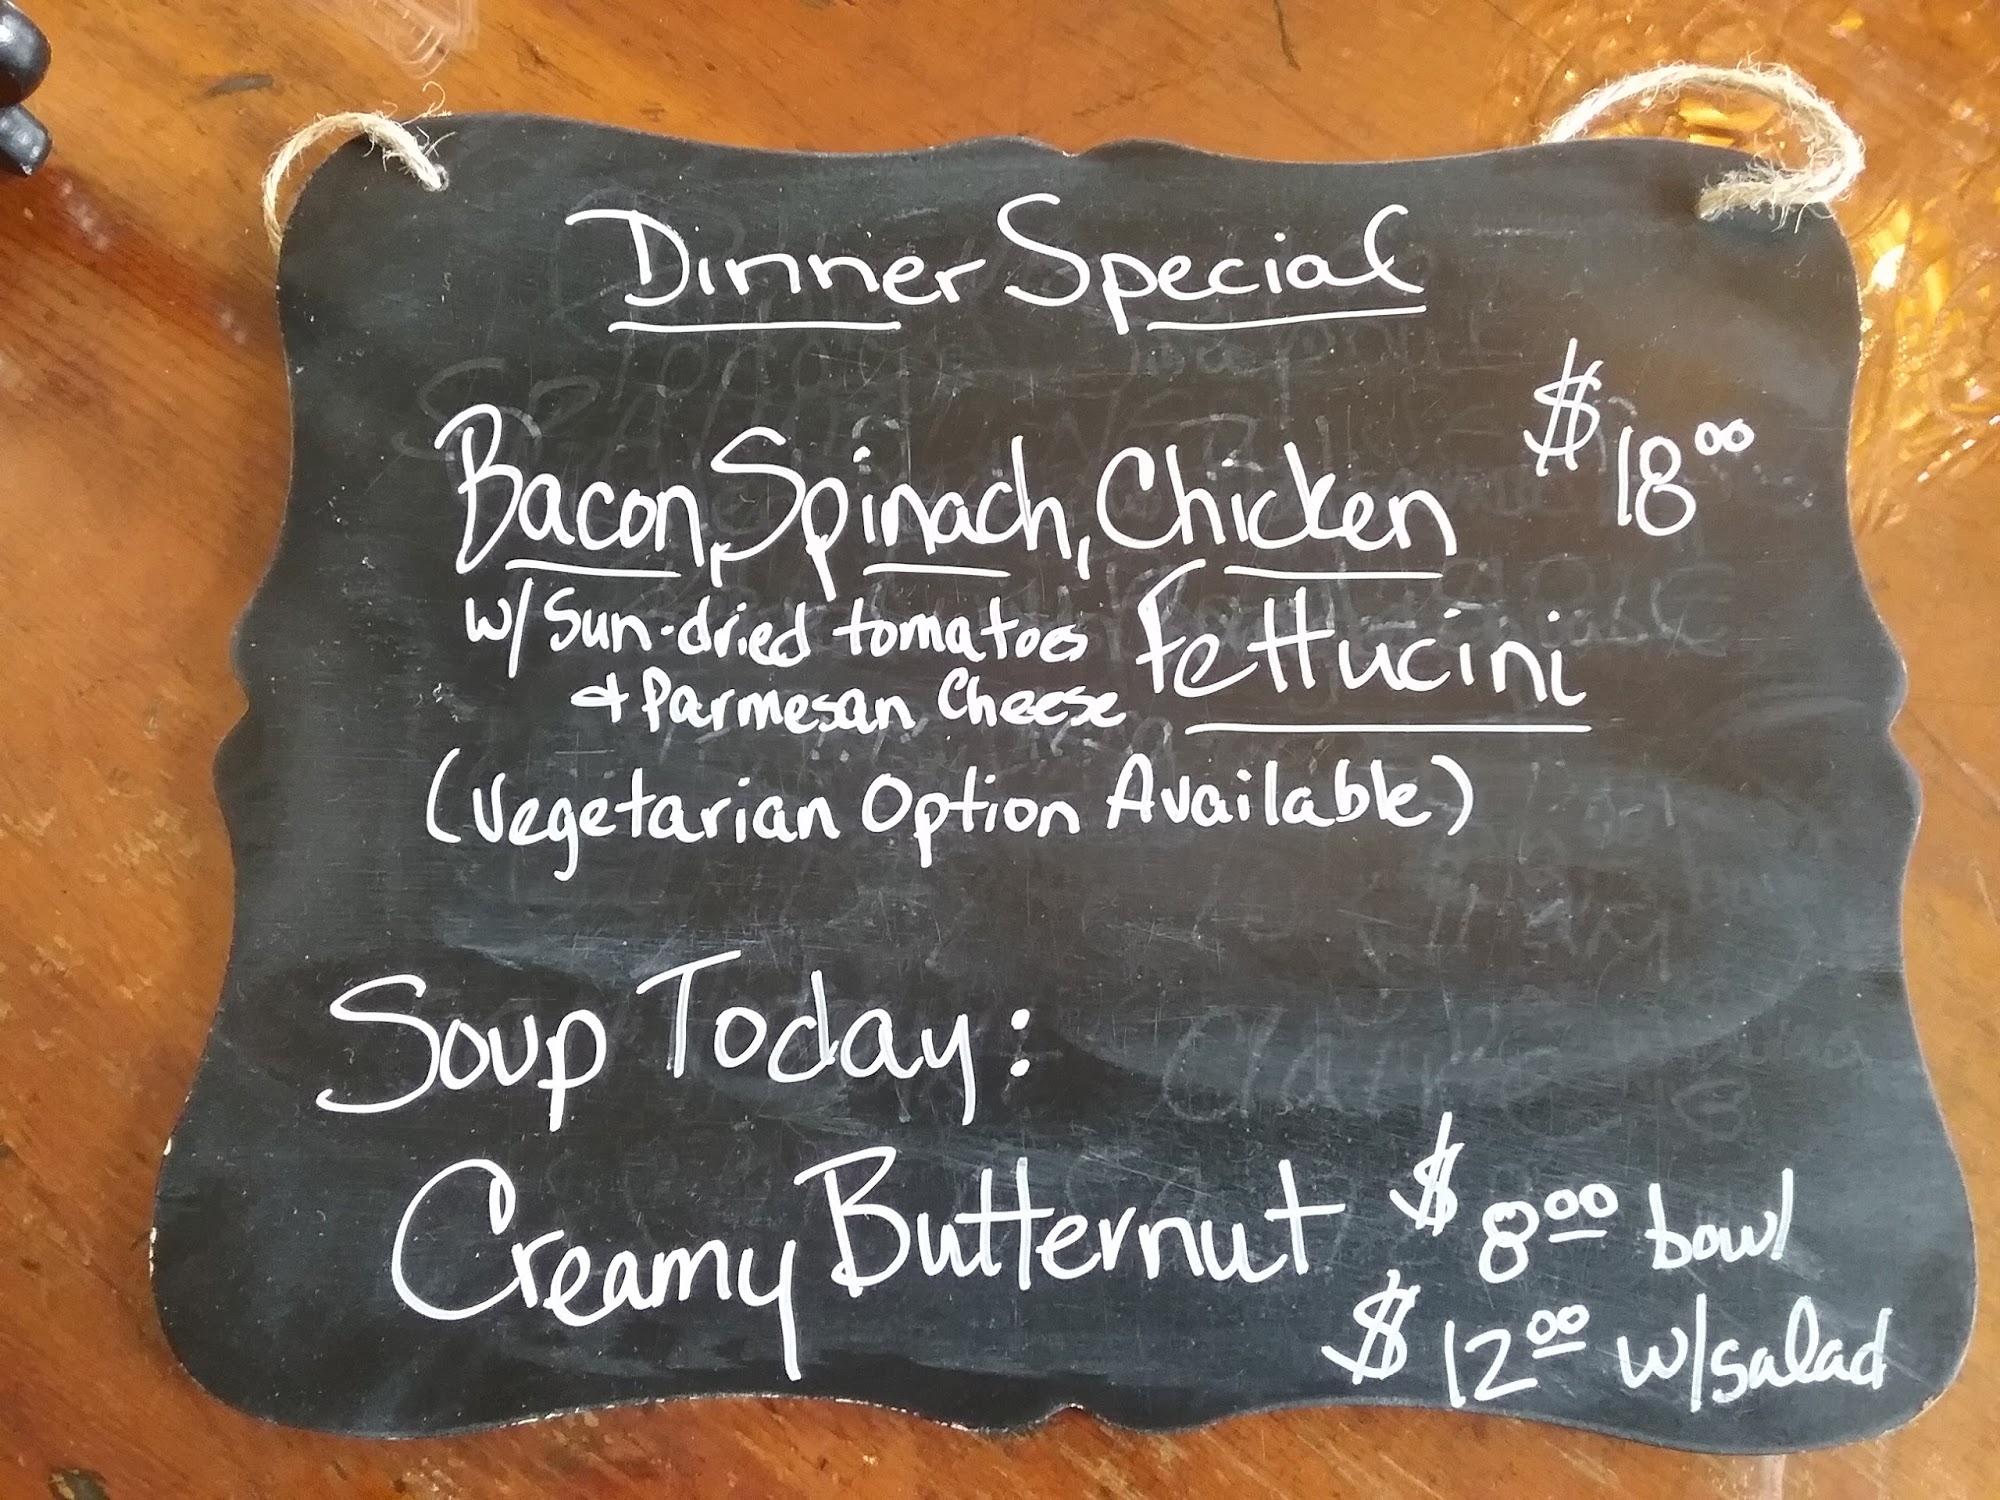 Dinner Special
$18.00
Bacon, Spinach, Chicken
w/ Sun-dried tomatoes Fettucini
& Parmesan Cheese
(Vegetarian Option Available)
Soup Today:
Creamy Butternut $8.00 bowl
$12.00 w/salad